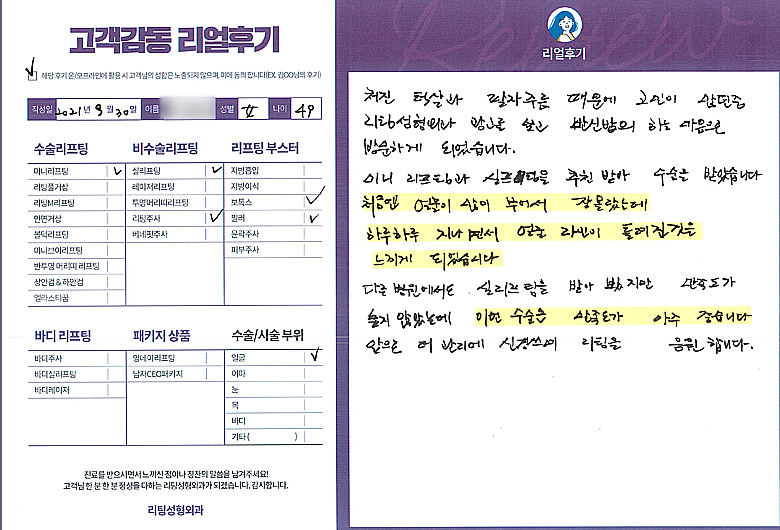 고객감동 리얼후기
해당 후기 온/오프라인에 활용 시 고객님의 성함은 노출되지 않으며, 이에 동의합니다(EX. 김OO님의 후기)
작성일 2021년 9월 30일 이름 성별 女 나이 49
수술리프팅
미니리프팅
리팅풀거상
리팅M리프팅
안면거상
볼턱리프팅
미니브이리프팅
반투명 머리띠 리프팅
상안검&하안검
엘라스티꿈
비수술리프팅
실리프팅
레이저리프팅
투명머리띠리프팅
리팅주사
베네핏주사
리프팅 부스터
지방흡입
지방이식
보톡스
필러
윤곽주사
피부주사
바디 리프팅
바디주사
바디실리프팅
바디레이저
패키지 상품
영데이리프팅
남자CEO패키지
수술/시술 부위
얼굴
이마
눈
목
바디
기타( )
진료를 받으시면서 느끼신 점이나 칭찬의 말씀을 남겨주세요!
고객님 한 분 한 분 정성을 다하는 리팅성형외과가 되겠습니다. 감사합니다.
리팅성형외과
리얼후기
처진 턱살과 팔자주름 때문에 고민이 많던중
리팅성형외과 광고를 보고 반신반의 하는 마음으로
방문하게 되었습니다.
미니 리프팅과 실리프팅을 추천 받아 수술을 받았습니다
처음엔 얼굴이 많이 부어서 잘 몰랐는데
하루하루 지나면서 얼굴 라인이 좋아진것을
느끼게 되었습니다
다른 병원에서도 실리프팅을 받아 봤지만 만족도가
높지 않았는데 이번 수술은 만족도가 아주 좋습니다
앞으로 더 관리에 신경쓰며 리팅을 응원합니다.